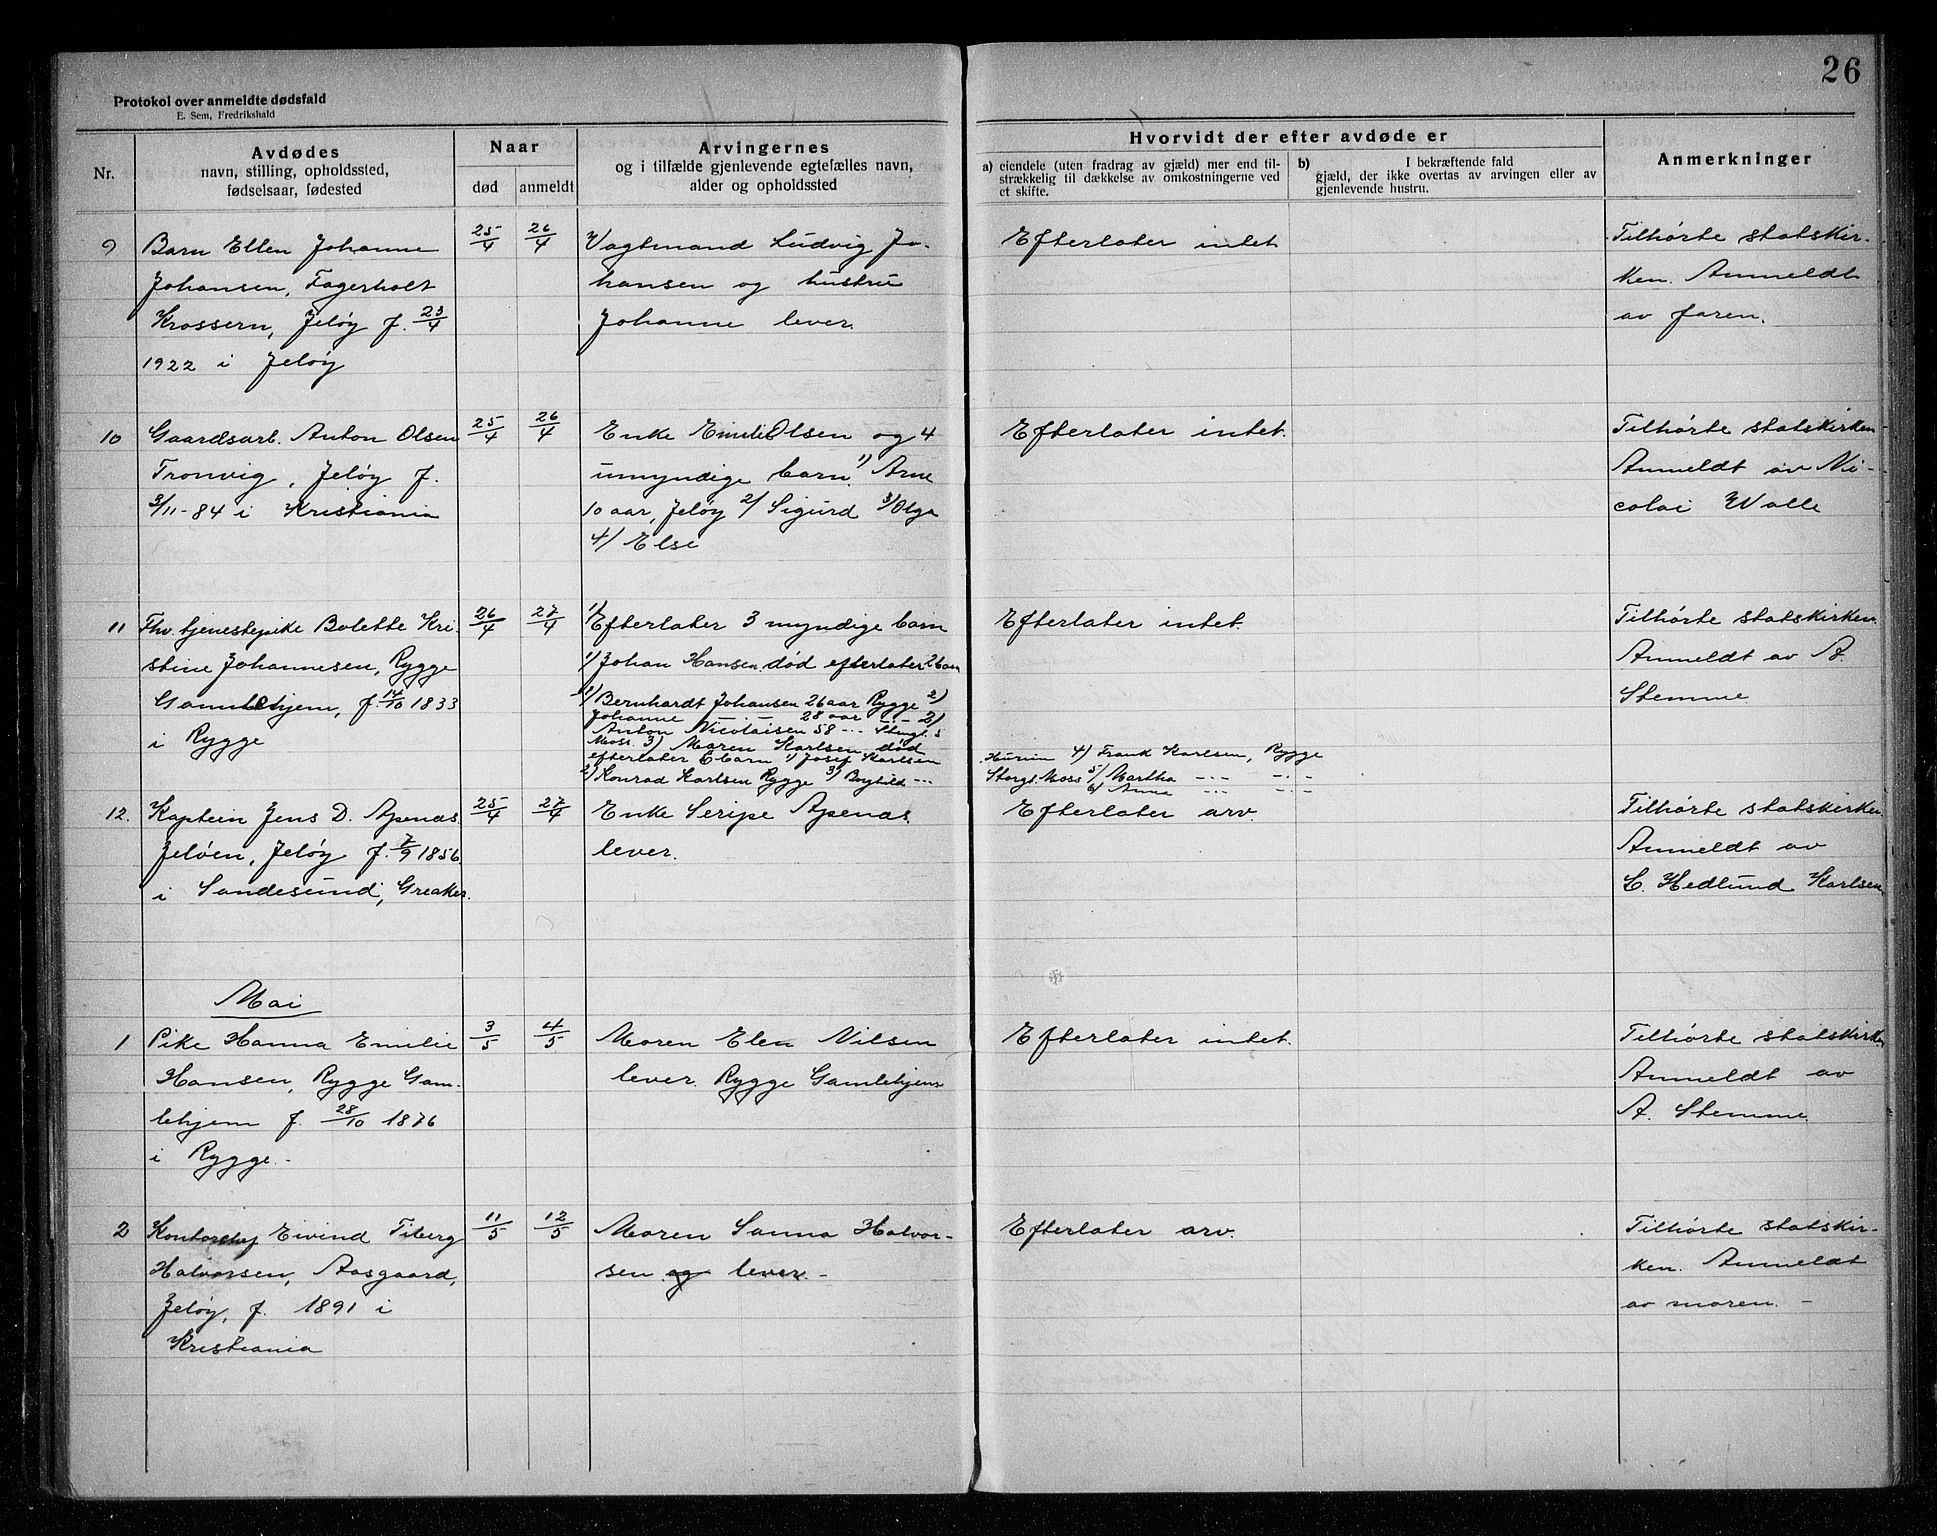 26
Protokol over anmeldte dødsfald
E. Sem, Fredrikshald
Nr.
Avdødes
navn, stilling, opholdssted,
fødselsaar, fødested
Naar
død
anmeldt
Arvingernes
og i tilfælde gjenlevende egtefælles navn,
alder og opholdssted
Hvorvidt der efter avdøde er
a) eiendele (uten fradrag av gjæld) mer end til-
strækkelig til dækkelse av omkostningerne ved
et skifte.
b) I bekræftende fald
gjæld, der ikke overtas av arvingen eller av
gjenlevende hustru.
Anmerkninger
9
Barn Ellen Johanne
Johansen, Fagerholt
Krossern, Jeløy f. 23/4
1922 i Jeløy
25/4
26/4
Vagtmand Ludvig Jo-
hansen og hustru
Johanne lever.
Efterlater intet
Tilhørte statskir-
ken. Anmeldt
av faren.
10
Gaardsarb. Anton Olsen
Tronvig, Jeløy f.
3/11-84 i Kristiania
25/4
26/4
Enke Emilie Olsen og 4
umyndige barn. 1) Arne
10 aar, Jeløy 2/ Sigurd 3/ Olga
4/ Else
Efterlater intet.
Tilhørte statskirken
Anmeldt av Ni-
colai Walle
11
Fhv. tjenestepike Bolette Kri-
stine Johannesen, Rygge
Gamlehjem, f. 14/10 1833
i Rygge
26/4
27/4
1/ Efterlater 3 myndige barn
1) Johan Hansen død efterlater 2
1/ Bernhardt Johansen 26 aar Rygge 2)
Johanne -.-.- 28 aar -.- 2)
Anton Nicolaisen 58 -..-
Moss. 3) Maren Karlsen død
efterlater 6 barn 1) Josef Karlsen
2) Konrad Karlsen Rygge 3) Borghild -..-
4) Frank Karlsen, Rygge
Storgt. Moss 5/ Martha -..- -..-
6) Anna -..- -..-
Efterlater intet.
Tilhørte statskirken.
Anmeldt av A.
Stemme
12.
Kaptein Jens D. Apenas
Jeløen, Jeløy f. 7/9 1856
i Sandesund, Greaker.
25/4
27/4
Enke Seripe Apenas
lever.
Efterlater arv.
Tilhørte statskirken.
Anmeldt av
C. Hedlund Karlsen
Mai
1
Pike Hanna Emilie
Hansen, Rygge Gam-
lehjem f. 28/10 1876
i Rygge.-
3/5
4/5
Moren Elen Nilsen
lever. Rygge Gamlehjem
Efterlater intet.
Tilhørte statskirken
Anmeldt av
A. Stemme
2
Kontorchef Eivind Tiberg
Halvorsen, Aasgaard,
Jeløy, f. 1891 i
Kristiania
11/5
12/5
Moren Sanna Halvor-
sen og lever.-
Efterlater arv.
Tilhørte statskir-
ken. Anmeldt
av moren. -